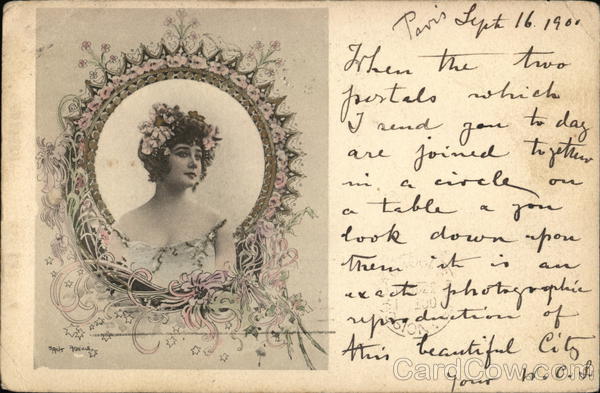 Paris Sept 16. 1900
When the two
postals which
I send you to day
are joined together
in a circle on
a table & you
look down upon
them it is an
exact photographic
reproduction of
this beautiful City
Your
CardCow.com